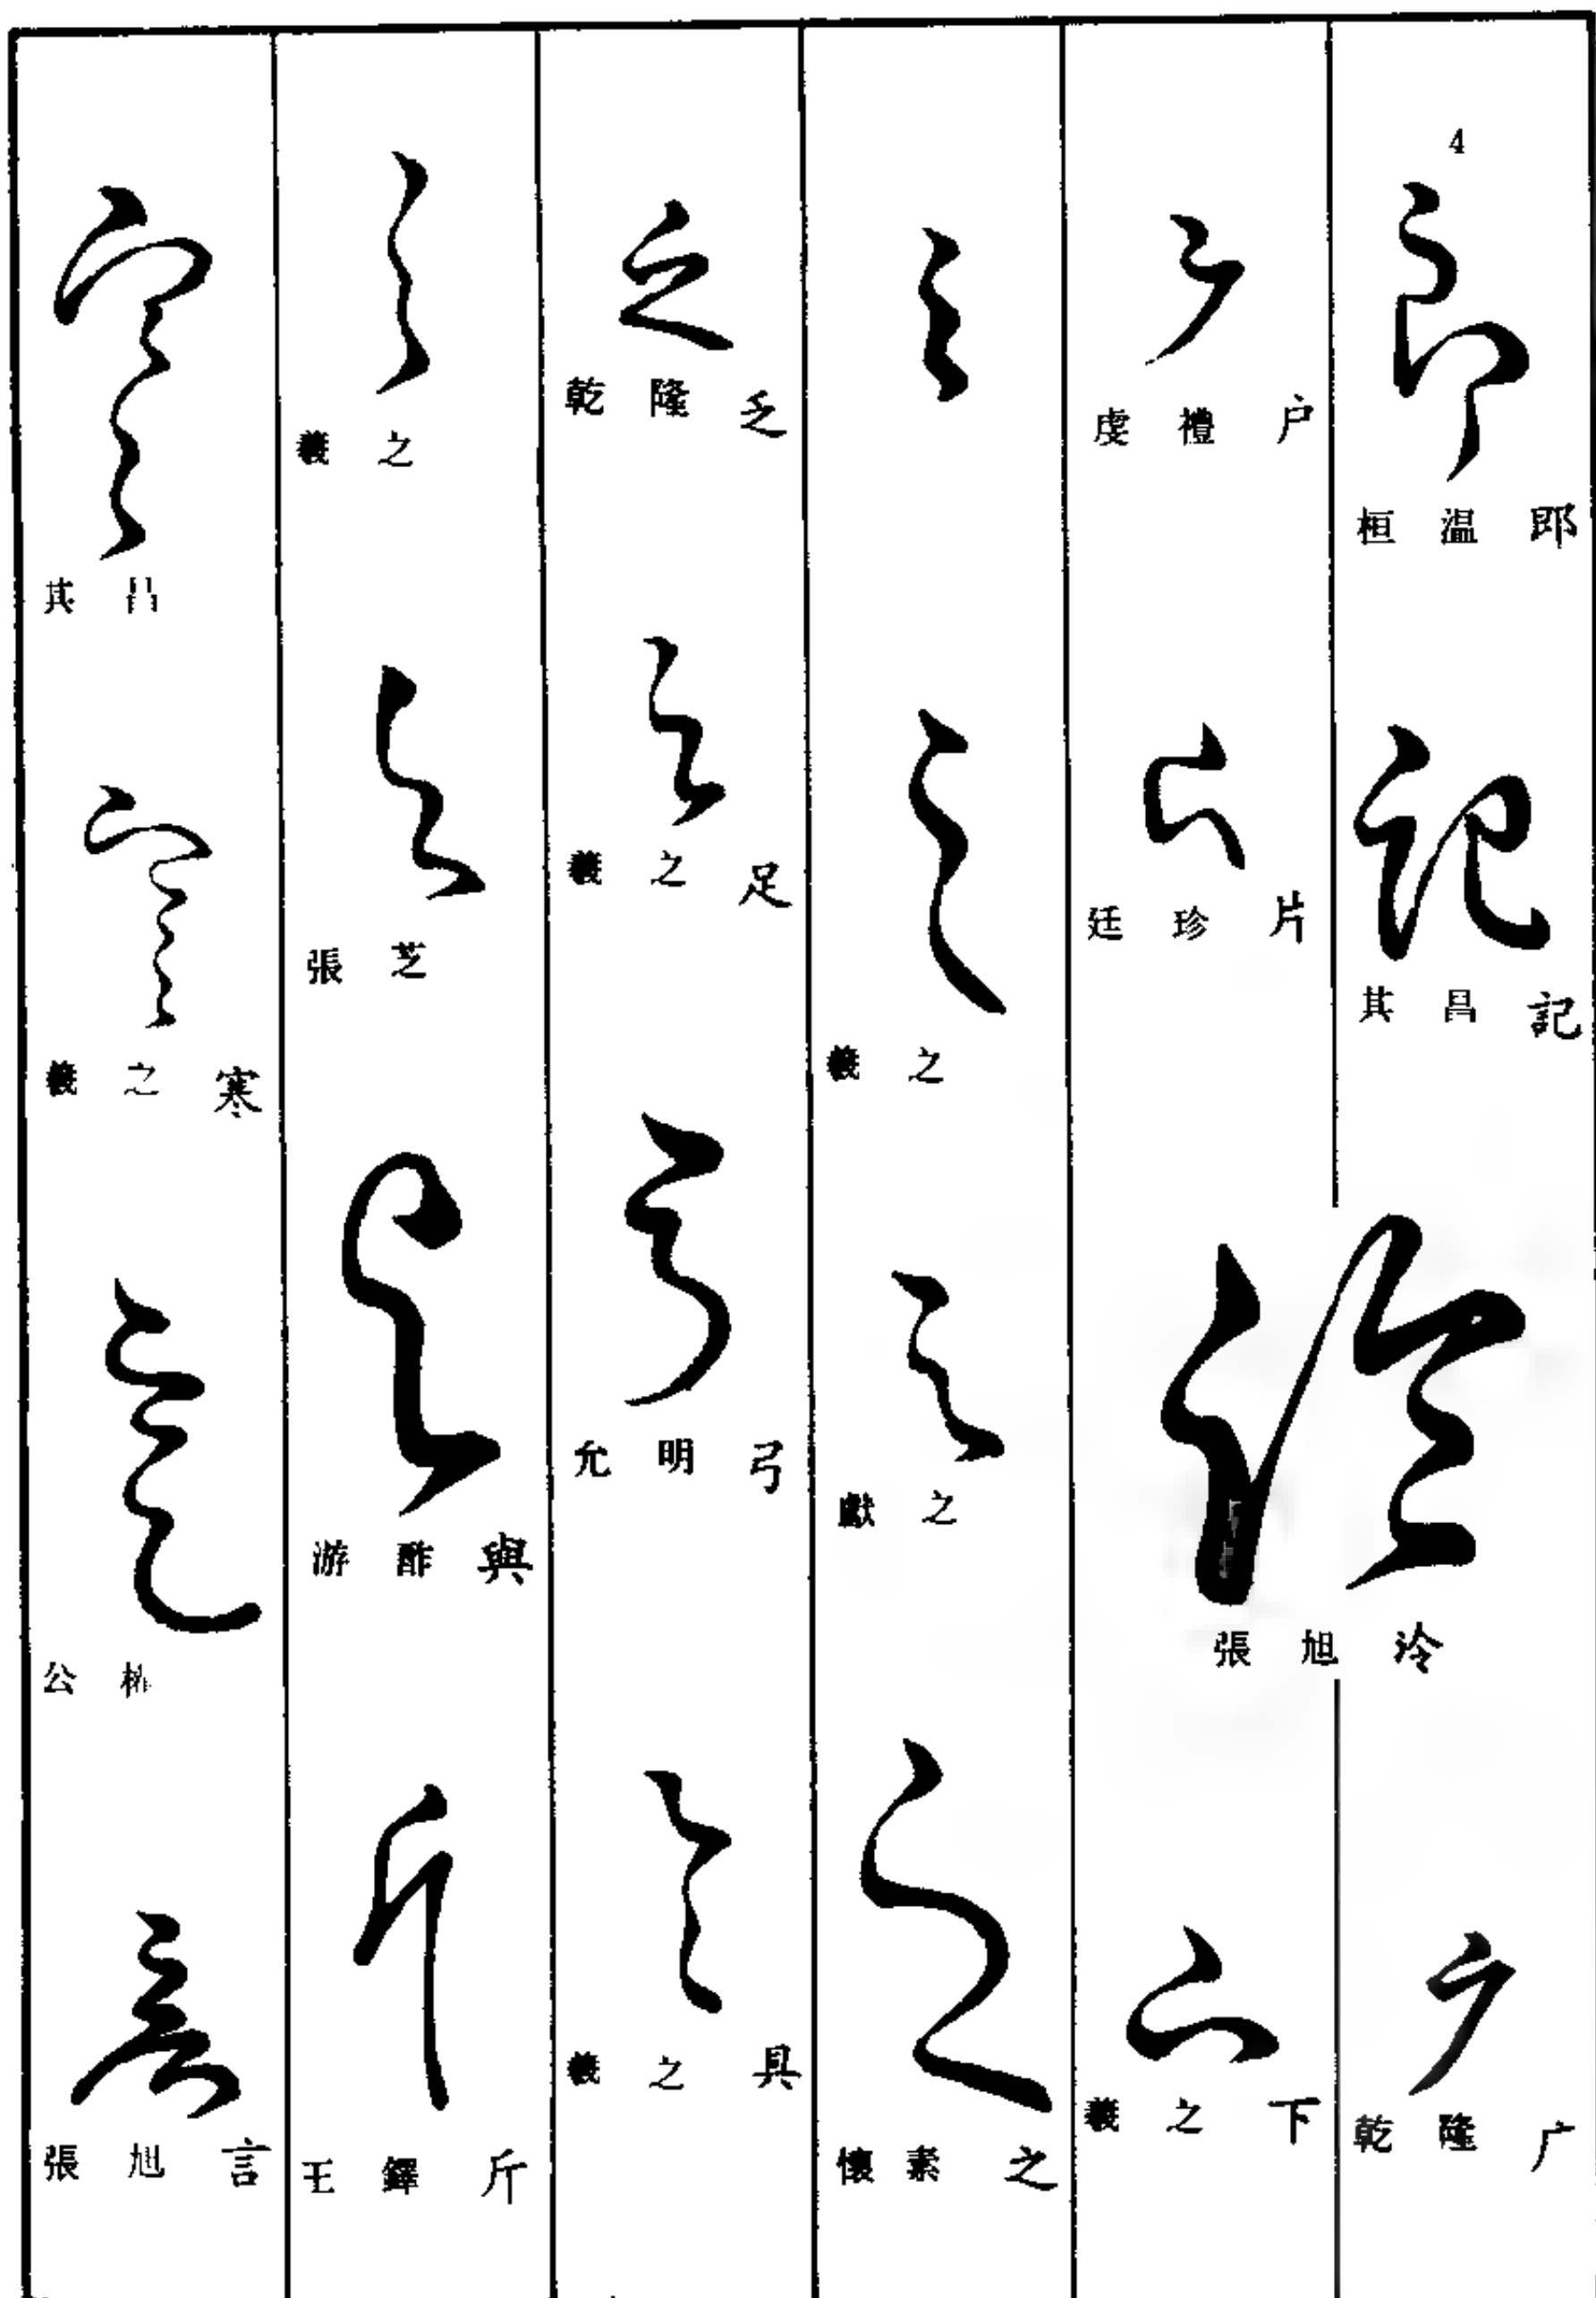 4
桓温 郎
其昌 記
張旭 冷
乾隆 广
虔禮 户
廷珍 片
羲之 下
羲之
獻之
懷素 之
乾隆 乏
羲之 足
允明 弓
羲之 具
羲之
張芝
游酢 與
王鐸 斤
其昌
羲之 寒
公權
張旭 言